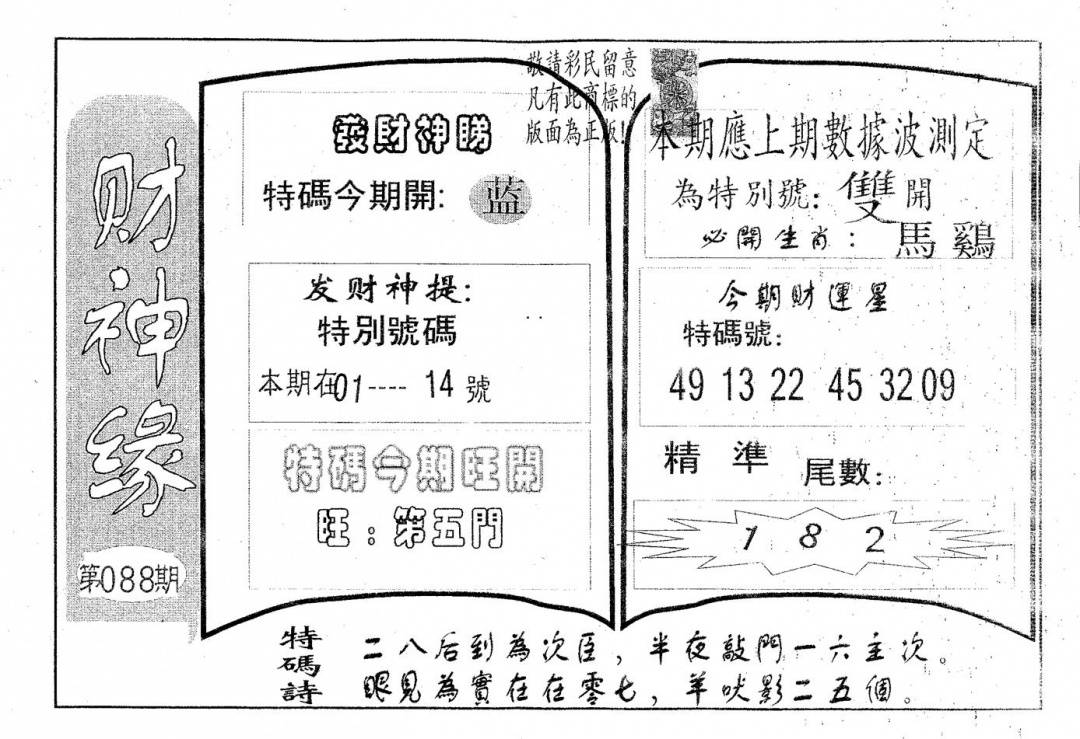 财神缘
第088期
敬請彩民留意
凡有此商標的
版面為正版!
發财神睇
特碼今期開: 蓝
发财神提:
特別號碼
本期在01---- 14 號
特碼今期旺開
旺:第五門
本期應上期數據波測定
為特別號: 雙開
必開生肖: 馬鷄
今期财運星
特碼號:
49 13 22 45 32 09
精 準 尾數:
1 8 2
特碼詩
二八后到為次臣,半夜敲門一六主次。
眼見為實在在零七,羊吠影二五個。